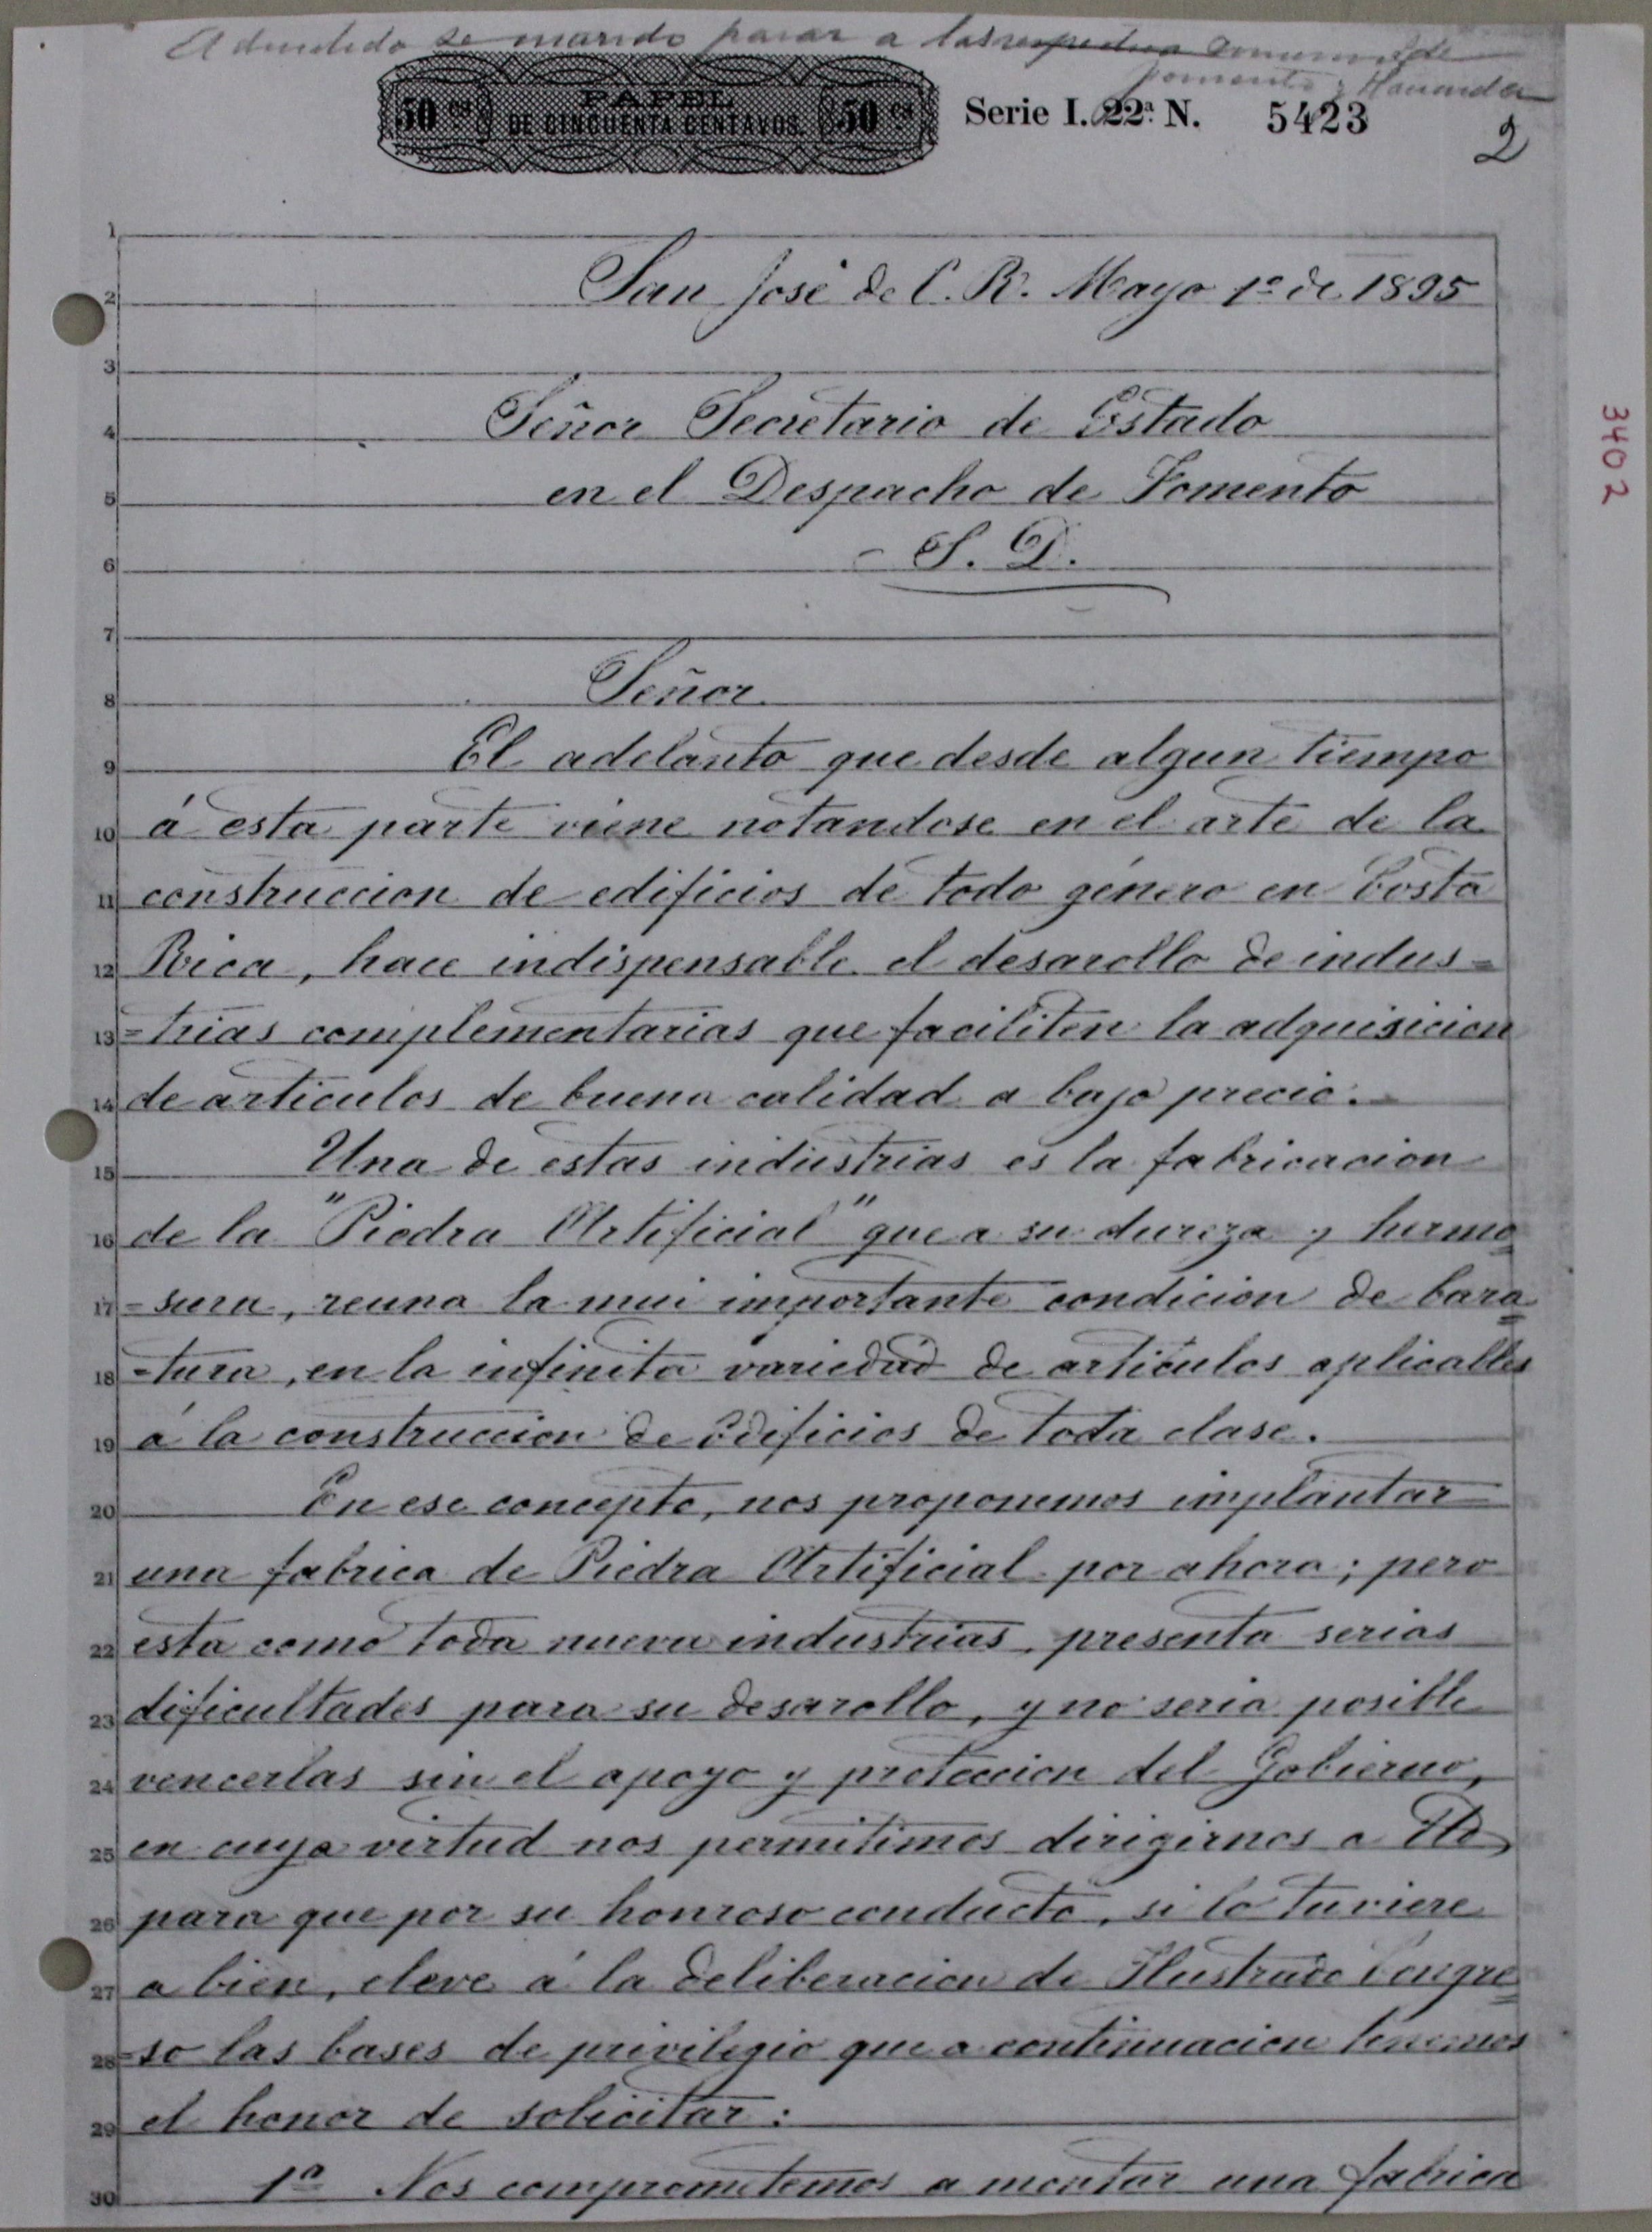 se mando pasar a las
Fomento y Hacienda
PAPEL
50 cs DE CINCUENTA CENTAVOS. 50 cs
Serie I. 22ª N. 5423
2
3402
1
2 San José de C. R. Mayo 1º de 1895
3
4 Señor Secretario de Estado
5 en el Despacho de Fomento
6 - S. D.
7
8 Señor
9 El adelanto que desde algun tiempo
10 á esta parte viene notandose en el arte de la
11 construccion de edificios de todo género en Costa
12 Rica, hace indispensable el desarollo de indus=
13 =trias complementarias que faciliten la adquisicion
14 de articulos de buena calidad a bajo precio.
15 Una de estas industrias es la fabricacion
16 de la "Piedra Artificial" que a su dureza y hermo=
17 =sura, reuna la mui importante condicion de bara=
18 =tura, en la infinita variedad de articulos aplicables
19 á la construccion de Edificios de toda clase.
20 En ese concepto, nos proponemos implantar
21 una fabrica de Piedra Artificial por ahora; pero
22 esta como toda nueva industrias, presenta serias
23 dificultades para su desarollo, y no seria posible
24 vencerlas sin el apoyo y proteccion del Gobierno,
25 en cuya virtud nos permitimos dirigirnos a Ud
26 para que por su honroso conducto, si lo tuviere
27 a bien, eleve á la deliberacion de Ilustrado Congre=
28 =so las bases de privilegio que a continuacion tenemos
29 el honor de solicitar:
30 1ª Nos comprometemos a montar una fabrica